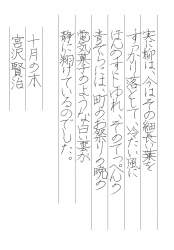 実に柳は、今はその細長い葉を
すっかり落として、冷たい風に
ほんのすこしゆれ、そのてっぺんの
青ぞらには、町のお祭りの晩の
電気菓子のような白い雲が
静に翔けているのでした。
十月の末
宮沢賢治